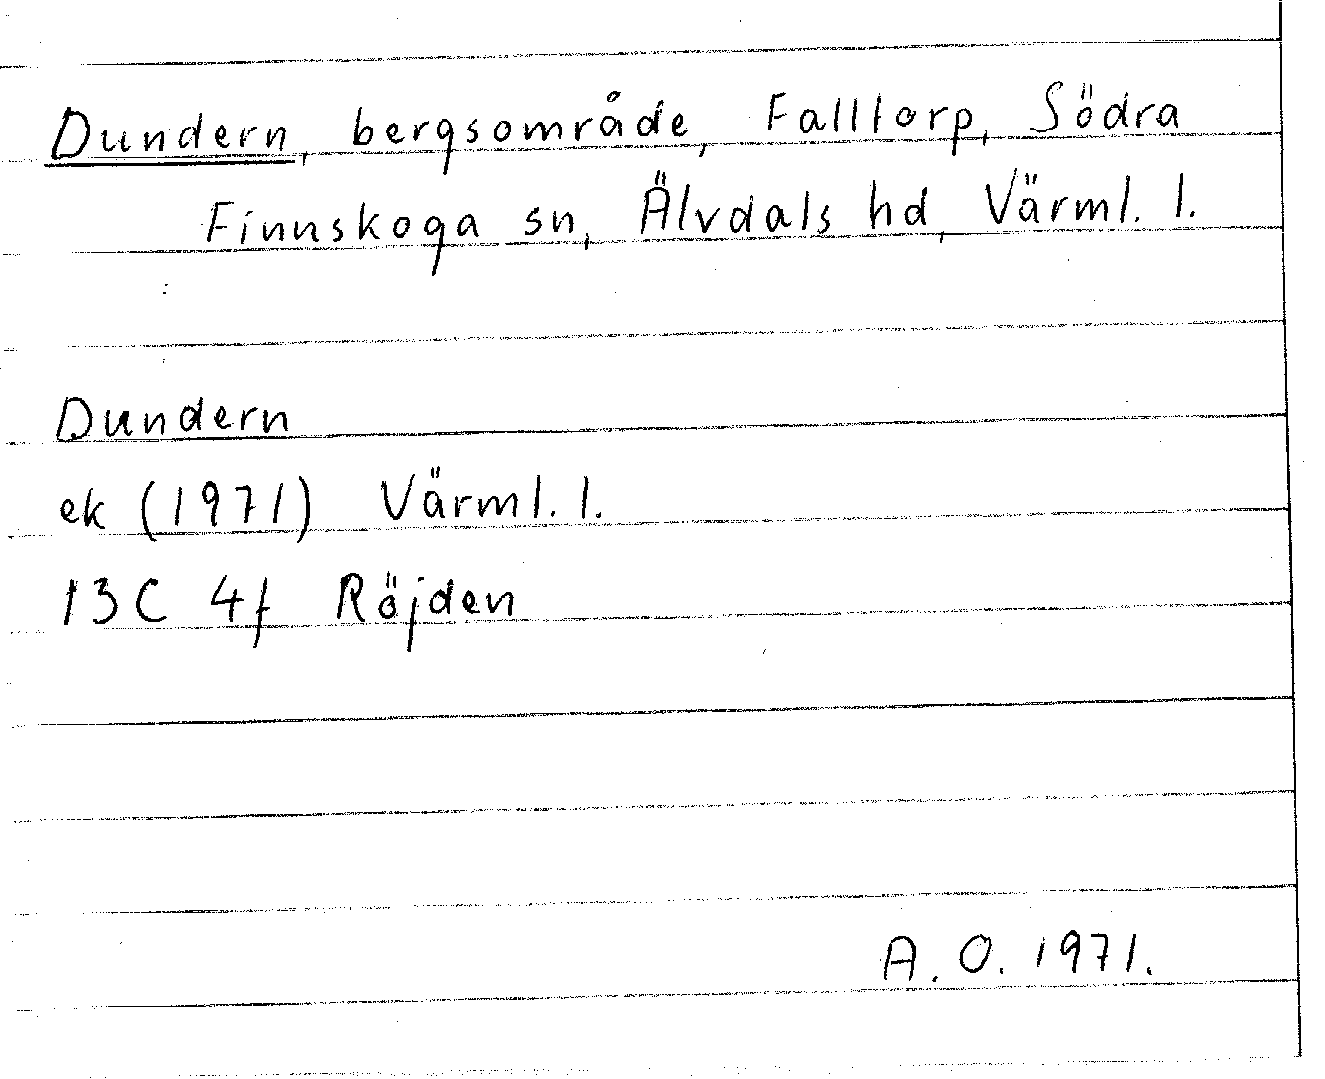 Dundern, bergsområde, Falltorp, Södra
Finnskoga sn, Älvdals hd, Värml. l.
Dundern
ek (1971) Värml. l.
13C 4f Röjden
A. O. 1971.